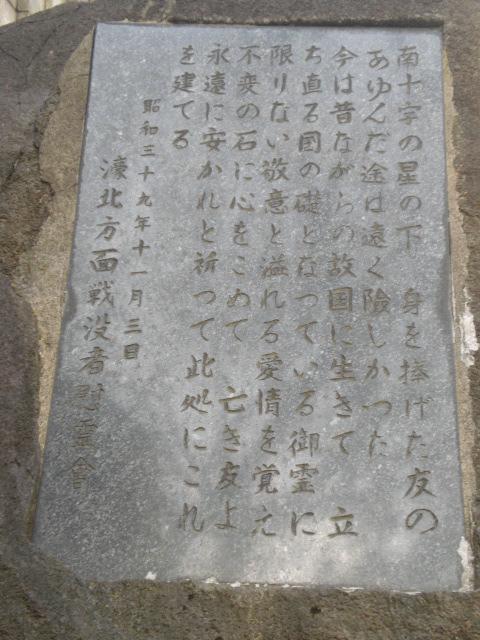 南十字の星の下 身を捧げた友の
あゆんだ途は遠く険しかつた
今は昔ながらの故国に生きて 立
ち直る国の礎となっている御霊に
限りない敬意と溢れる愛情を覚え
不変の石に心をこめて 亡き友よ
永遠に安かれと祈つて此処にこれ
を建てる
昭和三十九年十一月三日
濠北方面戦没者慰霊會